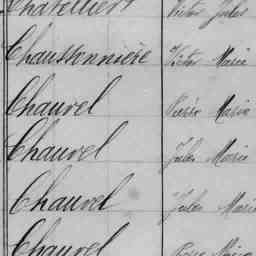 Chatelliers Victor Jules
Chaussonnière Victor Marie
Chauvel Pierre Marie
Chauvel Jules Marie
Chauvel Jules Marie
Chauvel Marie